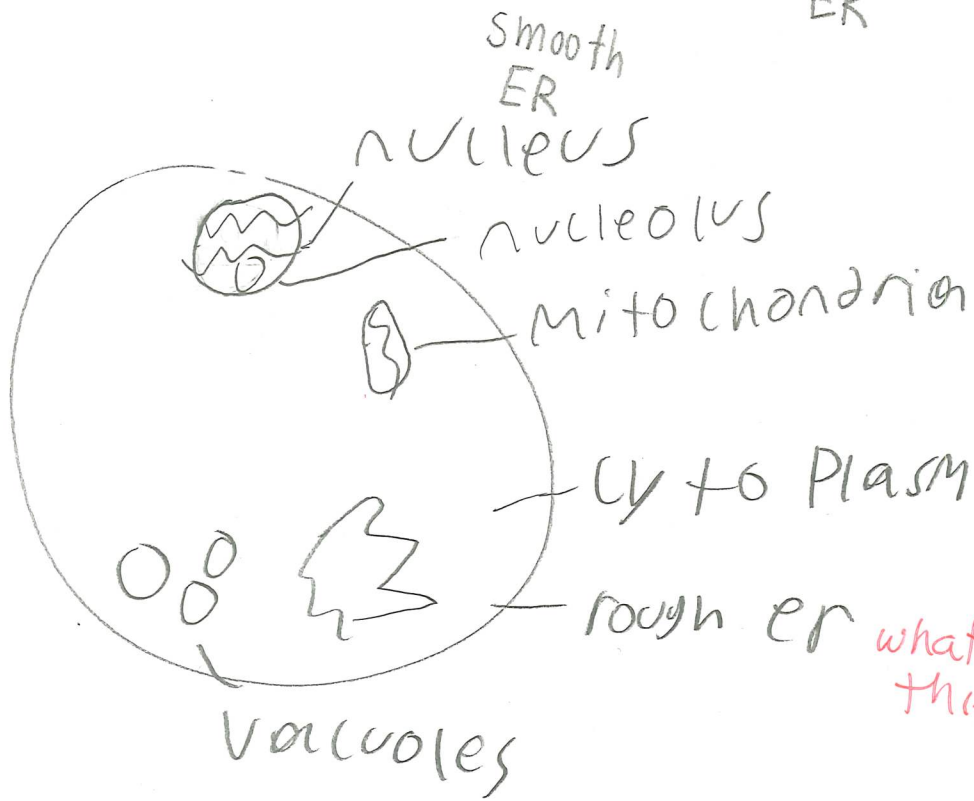 ER
smooth
ER
nucleus
nucleolus
mitochondrion
cytoplasm
rough er
what
vacuoles